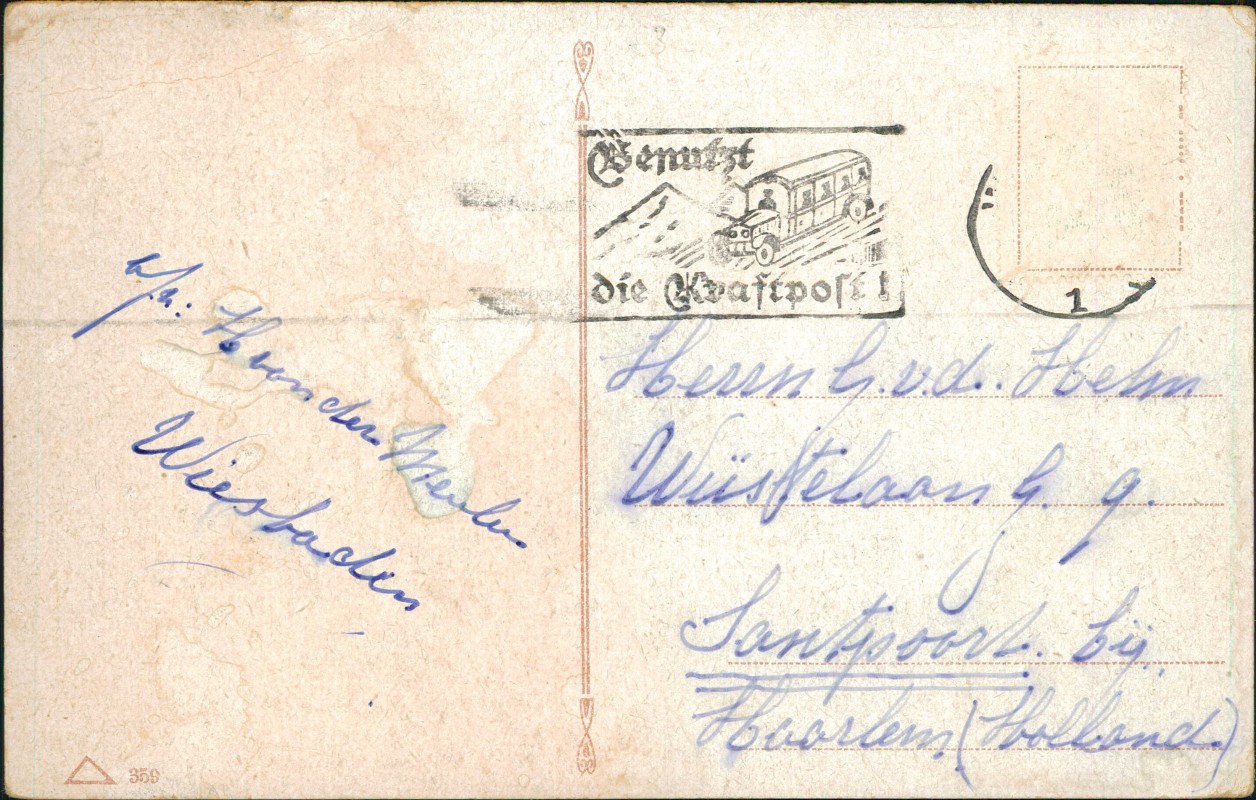 Benutzt
die Kraftpost!
1
b/a: H van der Meulen
Wiesbaden
Herrn G. v. d. Helm
Wüstelaan G. 9.
Santpoort. bij
Haarlem (Holland.)
359